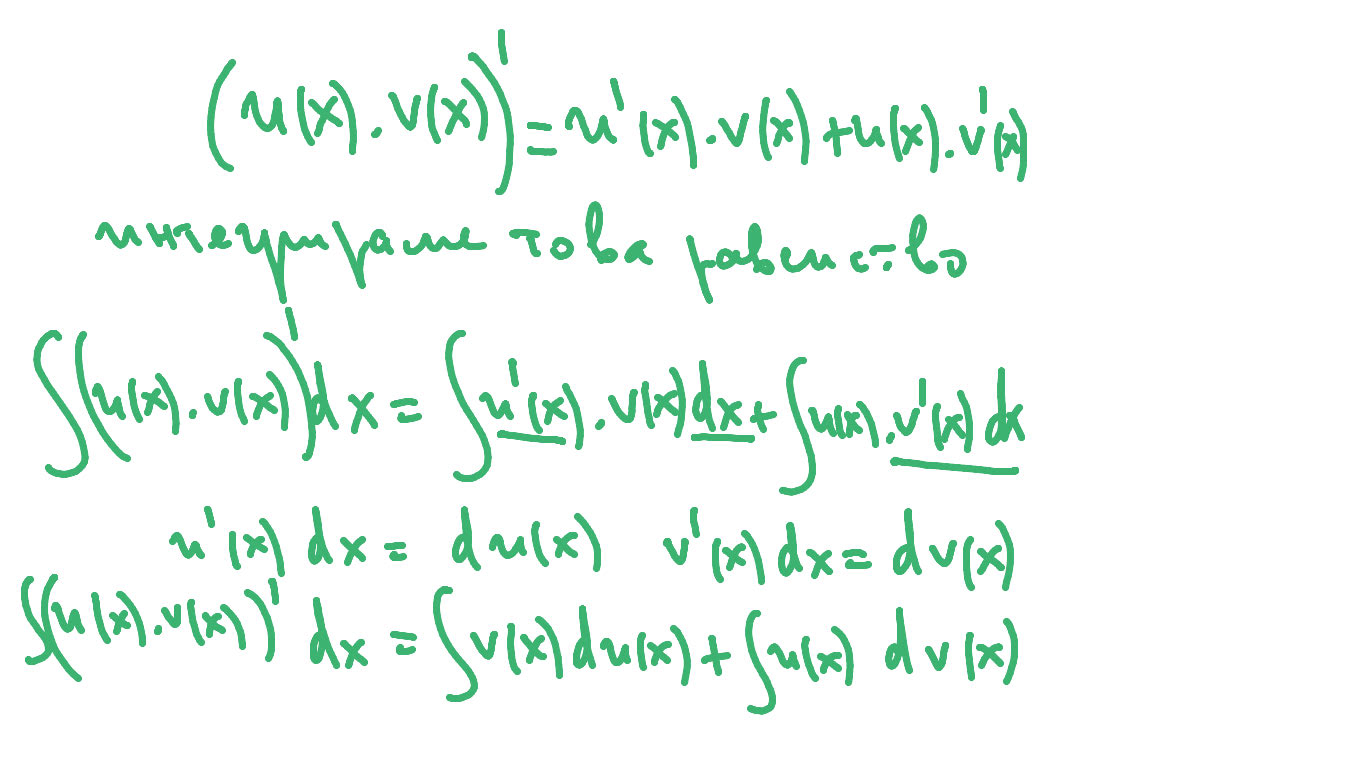 (u(x).v(x))' = u'(x).v(x)+u(x).v'(x)
интегрираме това равенство
∫(u(x).v(x))'dx = ∫u'(x).v(x)dx+∫u(x).v'(x)dx
u'(x)dx = du(x) v'(x)dx = dv(x)
∫(u(x).v(x))'dx = ∫v(x)du(x)+∫u(x)dv(x)